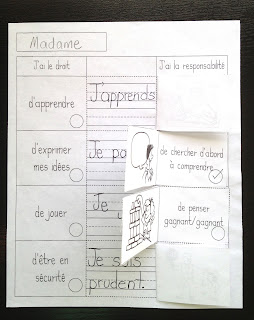 Madame
J'ai le droit
J'ai la responsabilité
d'apprendre
J'apprends
d'exprimer
mes idées
Je
de chercher d'abord
à comprendre
de jouer
Je
de penser
gagnant/gagnant
d'être en
sécurité
Je suis
prudent.